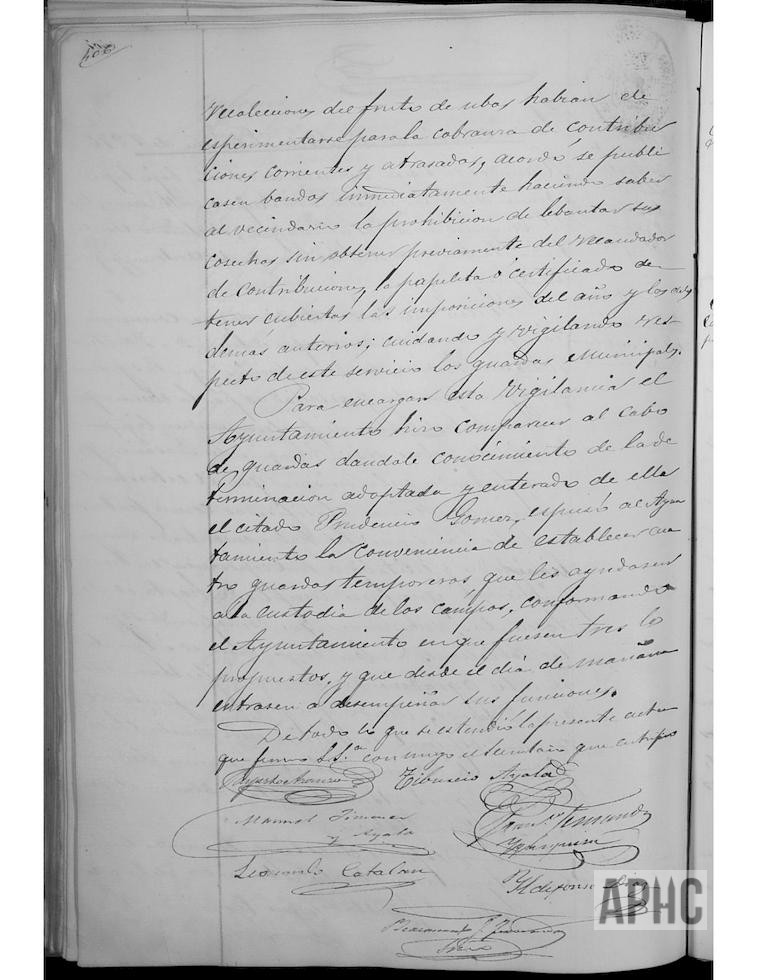 406
recolecciones del fruto de ubas habian de
esperimentarse para la cobranza de contribu
ciones corrientes y atrasadas, acordó se publi
casen bandos inmediatamente haciendo saber
al vecindario la prohibicion de lebantar sus
cosechas sin obtener previamente del recaudador
de contribuciones, la papeleta ó certificado de
tener cubiertas las imposiciones del año y los
demas anterios; cuidando y vigilando res-
pecto de este servicio los guardas Municipales.
Para encargar esta vigilancia el
Ayuntamiento hizo comparecer al Cabo
de guardas dandole conocimiento de la de
terminacion adoptada y enterado de ella
el citado Prudencio Gomez, espuso al Ayun
tamiento la conveniencia de establecer cua
tro guardas temporeros, que les ayudasen
a la custodia de los campos, conformando
el Ayuntamiento en que fuesen tres lo
propuestos, y que desde el dia de mañana
entrasen a desempeñar sus funciones.
De todo lo que se estendió la presente acta
que firma S.Sª conmigo el secretario que certifico
Tiburcio Ayala
Manuel Jimenez
y Ayala
Franco Fernandez
Yzquierdo
Leonardo Catalan
Yldefonso
APHC